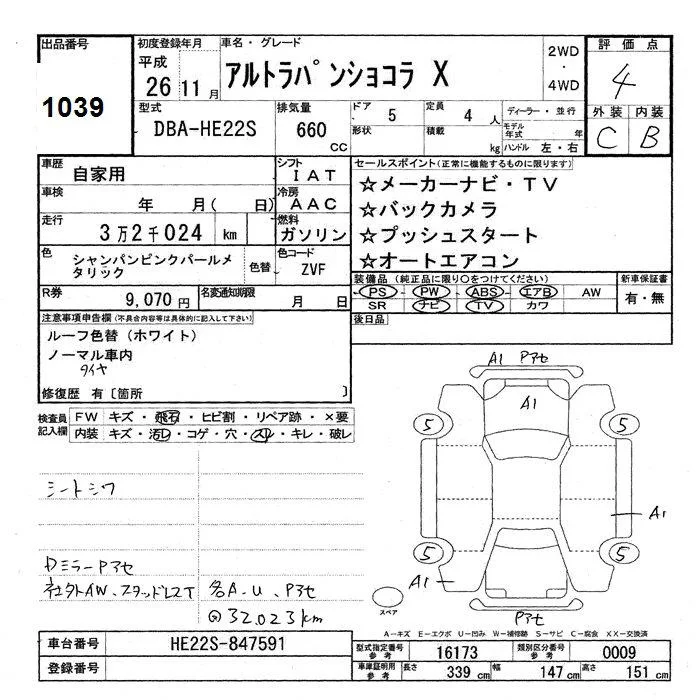 出品番号
1039
初度登録年月
平成
26 11 月
車名・グレード
アルトラパンショコラ X
2WD
・
4WD
評価点
4
外装 内装
C B
型式
DBA-HE22S
排気量
660
CC
ドア 5
形状
定員 4 人
積載 kg
ディーラー・並行
モデル年式 年
ハンドル 左・右
車歴
自家用
シフト
IAT
車検
年 月( 日)
冷房
AAC
走行
3万2千024 km
燃料
ガソリン
色
シャンパンピンクパールメ
タリック
色替
色コード
ZVF
R券
9,070円
名変通知期限
月 日
セールスポイント(正常に機能するものに限ります)
☆メーカーナビ・TV
☆バックカメラ
☆プッシュスタート
☆オートエアコン
装備品 (純正品に限り○をつけてください)
PS PW ABS エアB AW
SR ナビ TV カワ
新車保証書
有・無
後日品
注意事項申告欄(不具合内容等は具体的に記入して下さい)
ルーフ色替(ホワイト)
ノーマル車内
タイヤ
修復歴 有〔箇所 〕
検査員
記入欄
FW キズ・飛石・ヒビ割・リペア跡・×要
内装 キズ・汚レ・コゲ・穴・スレ・キレ・破レ
シートシワ
DミラーPアセ
社外AW、スタッドレスT
各A・U、Pアセ
@32,023km
A1 Pアセ
A1
5 5
A1
5 5
A1
Pアセ
スペア
A−キズ E−エクボ U−凹み W−補修跡 S−サビ C−腐食 XX−交換済
車台番号
HE22S-847591
登録番号
型式指定番号
参考
16173
類別区分番号
参考
0009
車庫証明用
参考
長さ 339 cm 幅 147 cm 高さ 151 cm